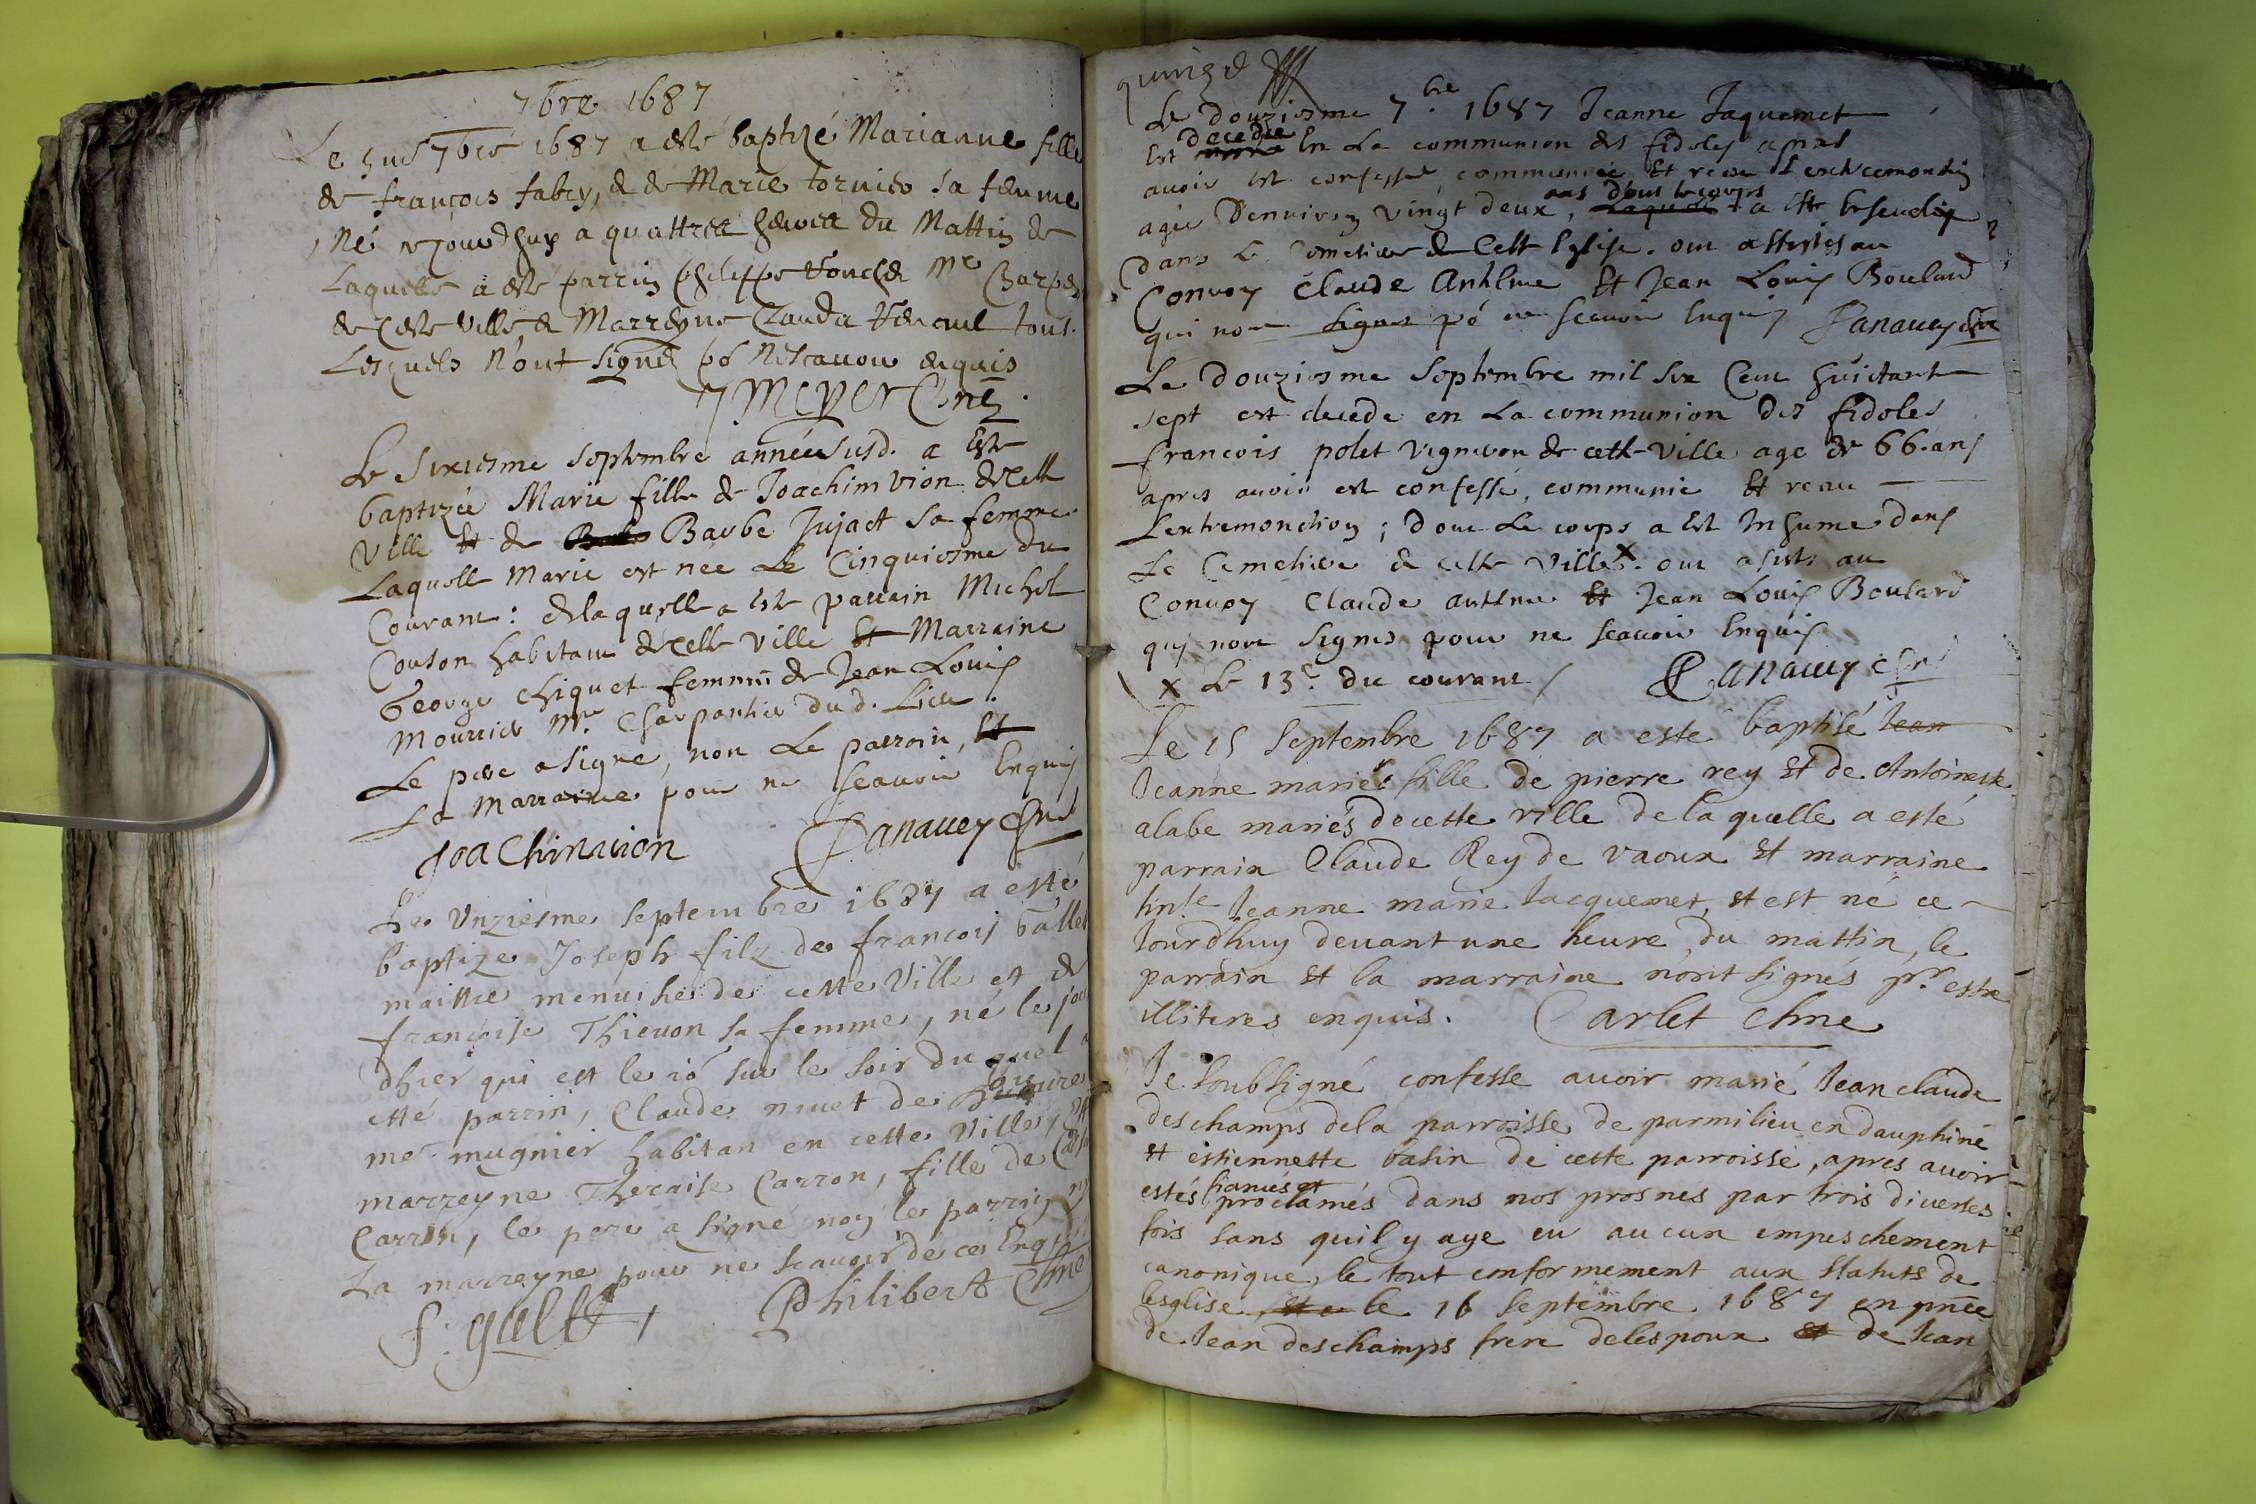 7bre 1687
Le 7bre 1687 a esté baptizé Marianne fille
de françois fabry, & de Marie tornier sa femme
Né a quattre heures du Mattin de
Laquelle a esté parrin philippe Me Charp
de Ceste Ville & Marreyne Clauda tous
Lesquels N'ont signé po Nescavoir enquis
Meyer Chne
Le sixiesme septembre année susd. a este
baptizée Marie fille de Joachim vion de cette
Ville Et de Barbe Jujact sa femme
Laquelle Marie est nee Le Cinquiesme du
Courant: de laquelle a este parrain Michel
Couson habitant de cette ville Et Marraine
George Chiquet femme de Jean Louis
Mourier Me Charpantier du d. Lieu.
Le pere a signe, non Le parrain, Et
La Marraine pour ne scavoir Enquis
Joa Chim vion Panauey Chne
Le Unziesme septembre 1687 a esté
baptize Joseph filz de françois gallet
maistre menusier de cette Ville et de
françoise Thieuon sa femme, né le jou
dhier qui est le 10 sur le soir du quel a
esté parrin, Claude niuet de
me mugnier habitan en cette Ville, Et
marreyne Theraise Carron, fille de
Carron, le pere a signé noy le parrin ny
La marreyne pour ne scauoir de ce Enquis
f. gallet Philibert Chne
quinze
Le Douziesme 7bre 1687 Jeanne Jaquemet
Est decedee En La communion des fideles apres
avoir est confessée, communiée Et receu L'extremontion
agée D'environ Vingt deux ans, d'ont le corps a este Enseueli
dans Le Cimetiere de Cette Eglise. ont assistés au
Convoy Claude Anthlme Et Jean Louis Boulard
qui nont signes po ne scavoir Enquis Panauey Chne
Le Douziesme Septembre mil six Cent huictant
sept est decede en La communion des fideles
francois polet Vigneron de cette Ville age de 66. ans
apres avoir est confessé, communie Et receu
Lextremonction; dont Le corps a est Inhume dans
Le Cemetiere de cette Ville X. ont asistes au
Convoy Claude antelme Et Jean Louis Boulard
quj nont signes pour ne scavoir Enquis
X Le 13e du courant / Panauey Chne
Le 15 Septembre 1687 a esté baptisé Jean
Jeanne marie fille de pierre rey Et de Antoinette
alabe mariés de cette ville de laquelle a esté
parrain Claude Rey de vaoux Et marraine
Jeanne marie Jacquemet, et est né ce
Jourdhuy deuant une heure du mattin, le
parrain Et la marraine n'ont signés pr. estre
illiteres enquis. Carlet Chne
Je soubsigné confesse avoir marié Jean claude
des champs de la parroisse de parmilieu en dauphiné
et estiennette basin de cette parroisse, apres avoir
estés fiancés et proclamés dans nos prosnes par trois diverses
fois sans quil y aye eu aucun empeschement
canonique, le tout conformement aux statuts de
lesglise le 16 Septembre 1687 en pnce
de Jean deschamps frere de lespoux et de Jean